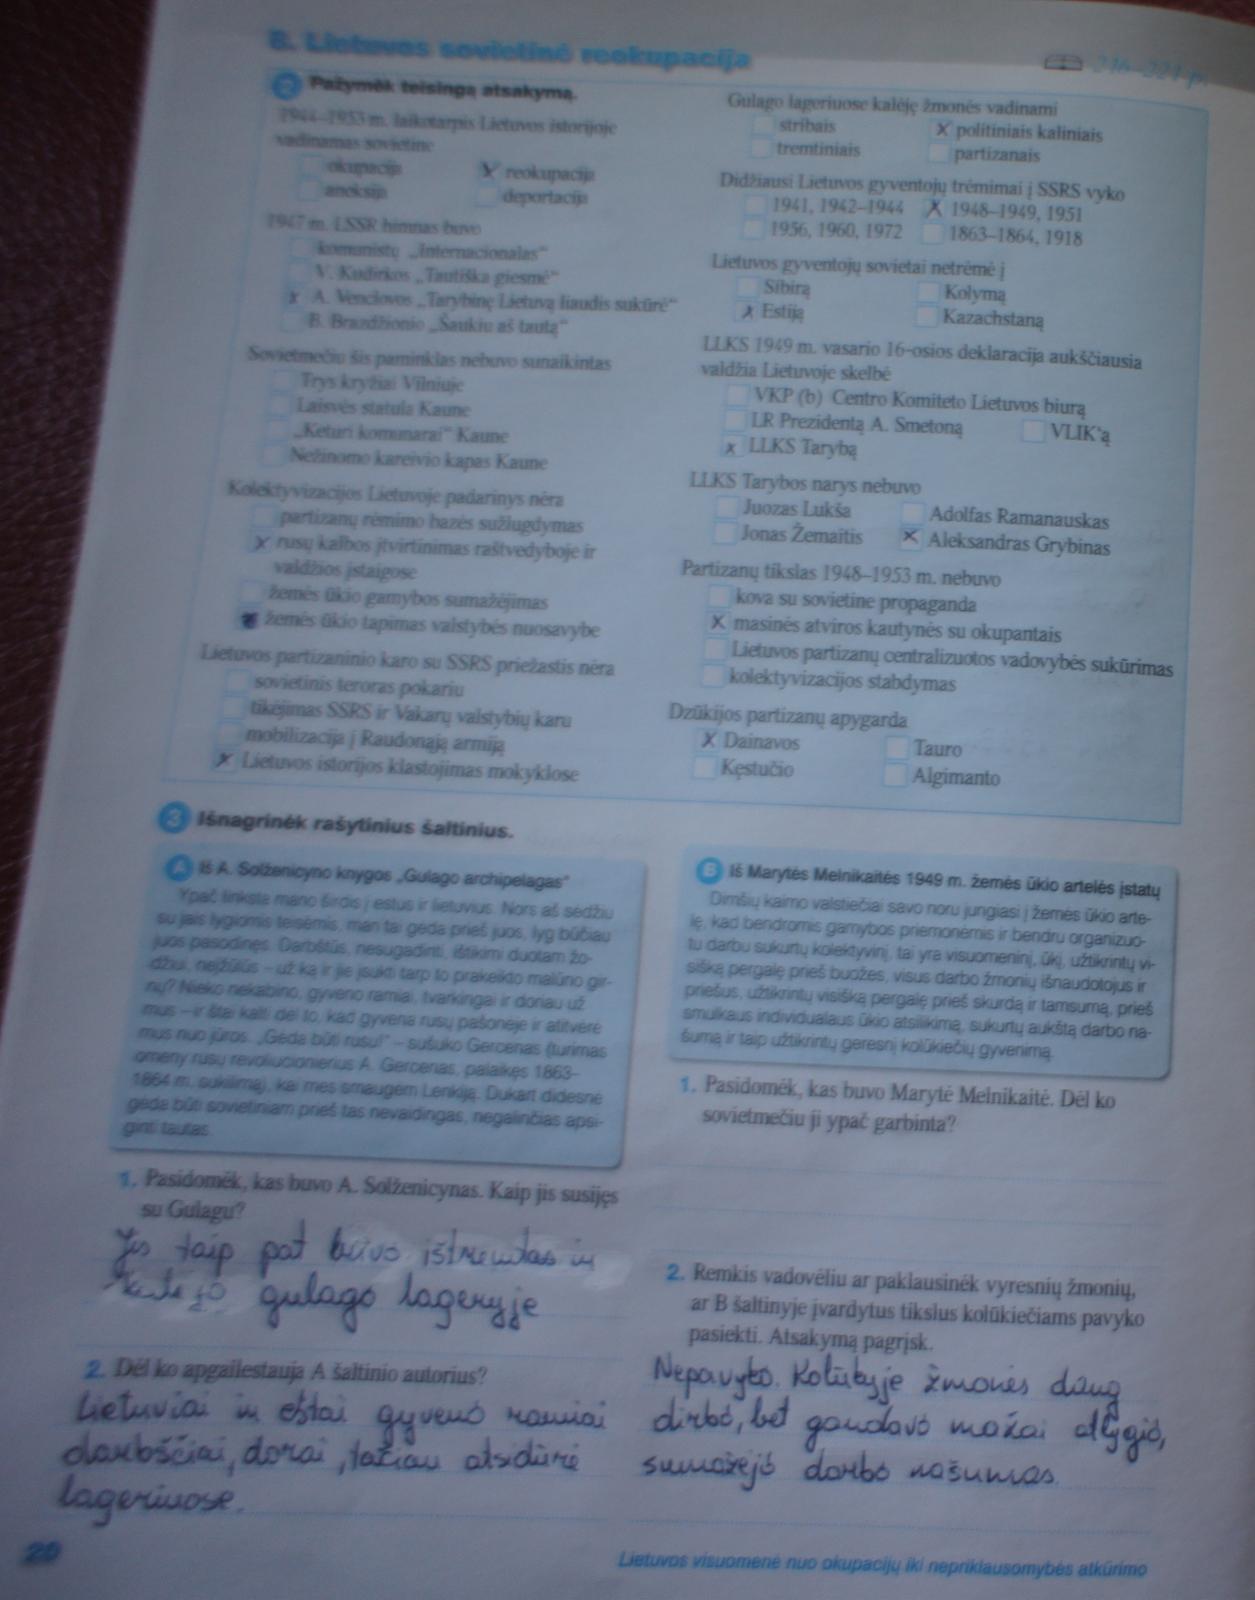 8. Lietuvos sovietinė reokupacija
216–221 p.
2 Pažymėk teisingą atsakymą.
1944–1953 m. laikotarpis Lietuvos istorijoje
vadinamas sovietine
okupacija X reokupacija
aneksija deportacija
1947 m. LSSR himnas buvo
komunistų „Internacionalas“
V. Kudirkos „Tautiška giesmė“
X A. Venclovos „Tarybinę Lietuvą liaudis sukūrė“
B. Brazdžionio „Šaukiu aš tautą“
Sovietmečiu šis paminklas nebuvo sunaikintas
Trys kryžiai Vilniuje
Laisvės statula Kaune
„Keturi komunarai“ Kaune
Nežinomo kareivio kapas Kaune
Kolektyvizacijos Lietuvoje padarinys nėra
partizanų rėmimo bazės sužlugdymas
X rusų kalbos įtvirtinimas raštvedyboje ir
valdžios įstaigose
žemės ūkio gamybos sumažėjimas
žemės ūkio tapimas valstybės nuosavybe
Lietuvos partizaninio karo su SSRS priežastis nėra
sovietinis teroras pokariu
tikėjimas SSRS ir Vakarų valstybių karu
mobilizacija į Raudonąją armiją
X Lietuvos istorijos klastojimas mokyklose
Gulago lageriuose kalėję žmonės vadinami
stribais X politiniais kaliniais
tremtiniais partizanais
Didžiausi Lietuvos gyventojų trėmimai į SSRS vyko
1941, 1942–1944 X 1948–1949, 1951
1956, 1960, 1972 1863–1864, 1918
Lietuvos gyventojų sovietai netrėmė į
Sibirą Kolymą
X Estiją Kazachstaną
LLKS 1949 m. vasario 16-osios deklaracija aukščiausia
valdžia Lietuvoje skelbė
VKP (b) Centro Komiteto Lietuvos biurą
LR Prezidentą A. Smetoną VLIK‘ą
X LLKS Tarybą
LLKS Tarybos narys nebuvo
Juozas Lukša Adolfas Ramanauskas
Jonas Žemaitis X Aleksandras Grybinas
Partizanų tikslas 1948–1953 m. nebuvo
kova su sovietine propaganda
X masinės atviros kautynės su okupantais
Lietuvos partizanų centralizuotos vadovybės sukūrimas
kolektyvizacijos stabdymas
Dzūkijos partizanų apygarda
X Dainavos Tauro
Kęstučio Algimanto
3 Išnagrinėk rašytinius šaltinius.
A Iš A. Solženicyno knygos „Gulago archipelagas“
Ypač linksta mano širdis į estus ir lietuvius. Nors aš sėdžiu
su jais lygiomis teisėmis, man tai gėda prieš juos, lyg būčiau
juos pasodinęs. Darbštūs, nesugadinti, ištikimi duotam žo-
džiui, neįžūlūs – už ką ir jie įsukti tarp to prakeikto malūno gir-
nų? Nieko nekabino, gyveno ramiai, tvarkingai ir doriau už
mus – ir štai kalti dėl to, kad gyvena rusų pašonėje ir atitvėrė
mus nuo jūros. „Gėda būti rusu!“ – sušuko Gercenas (turimas
omeny rusų revoliucionierius A. Gercenas, palaikęs 1863–
1864 m. sukilimą), kai mes smaugėm Lenkiją. Dukart didesnė
gėda būti sovietiniam prieš tas nevaidingas, negalinčias apsi-
ginti tautas.
1. Pasidomėk, kas buvo A. Solženicynas. Kaip jis susijęs
su Gulagu?
Jis taip pat buvo ištremtas ir
kalėjo gulago lageryje
2. Dėl ko apgailestauja A šaltinio autorius?
Lietuviai ir estai gyveno ramiai
darbščiai, dorai, tačiau atsidūrė
lageriuose.
B Iš Marytės Melnikaitės 1949 m. žemės ūkio artelės įstatų
Dimšių kaimo valstiečiai savo noru jungiasi į žemės ūkio arte-
lę, kad bendromis gamybos priemonėmis ir bendru organizuo-
tu darbu sukurtų kolektyvinį, tai yra visuomeninį, ūkį, užtikrintų vi-
sišką pergalę prieš buožes, visus darbo žmonių išnaudotojus ir
priešus, užtikrintų visišką pergalę prieš skurdą ir tamsumą, prieš
smulkaus individualaus ūkio atsilikimą, sukurtų aukštą darbo na-
šumą ir taip užtikrintų geresnį kolūkiečių gyvenimą.
1. Pasidomėk, kas buvo Marytė Melnikaitė. Dėl ko
sovietmečiu ji ypač garbinta?
2. Remkis vadovėliu ar paklausinėk vyresnių žmonių,
ar B šaltinyje įvardytus tikslus kolūkiečiams pavyko
pasiekti. Atsakymą pagrįsk.
Nepavyko. Kolūkyje žmonės daug
dirbo, bet gaudavo mažai atlygio,
sumažėjo darbo našumas.
20
Lietuvos visuomenė nuo okupacijų iki nepriklausomybės atkūrimo